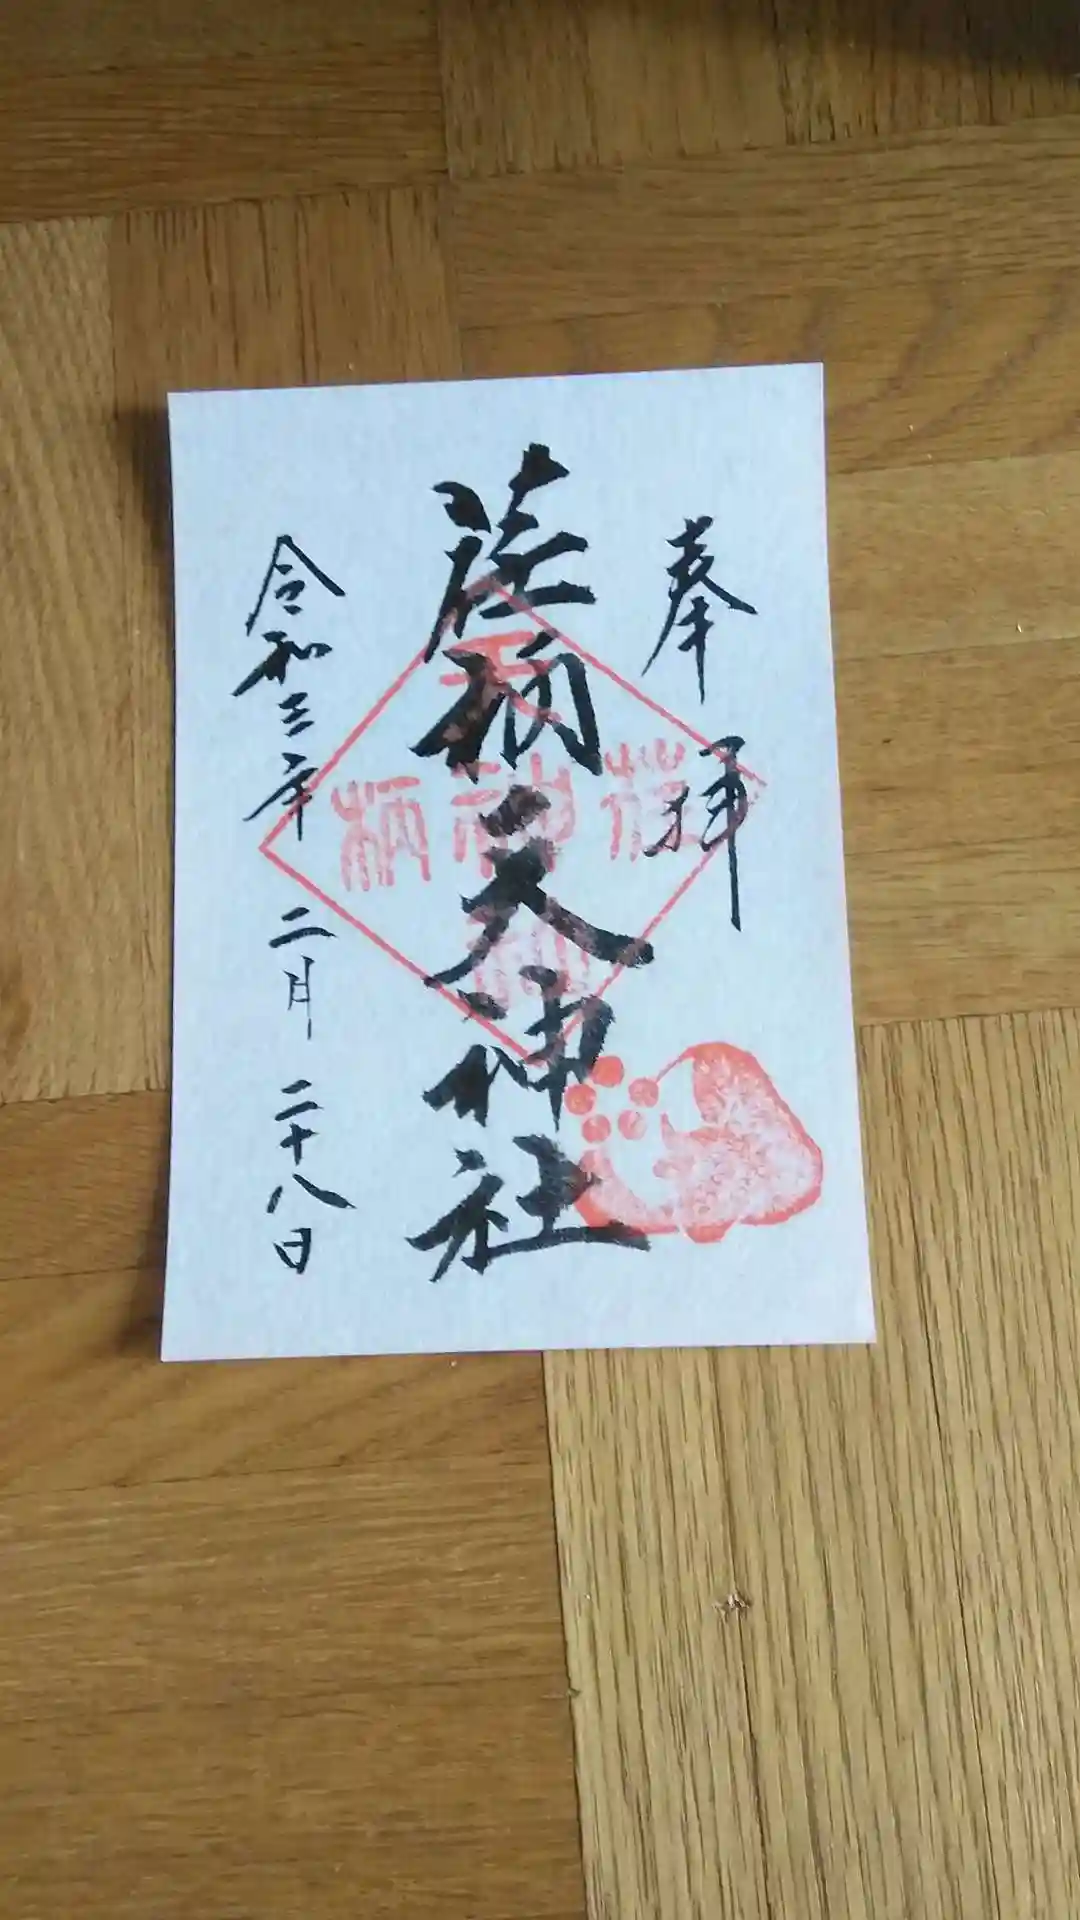 奉拝
荏柄天神社
令和三年 二月 二十八日